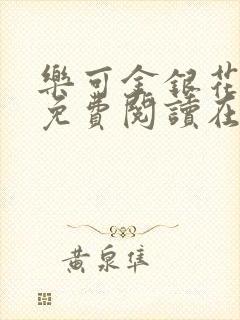 樂可金銀花
免費閱讀在
黃泉隼